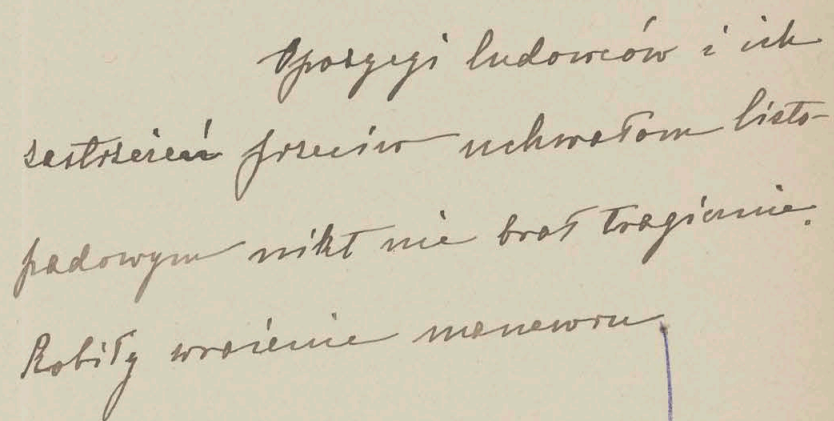 Opozycji ludowców i ich
zastrzeżeń przeciw uchwałom listo-
padowym nikt nie brał tragicznie.
Robiły wrażenie manewru.